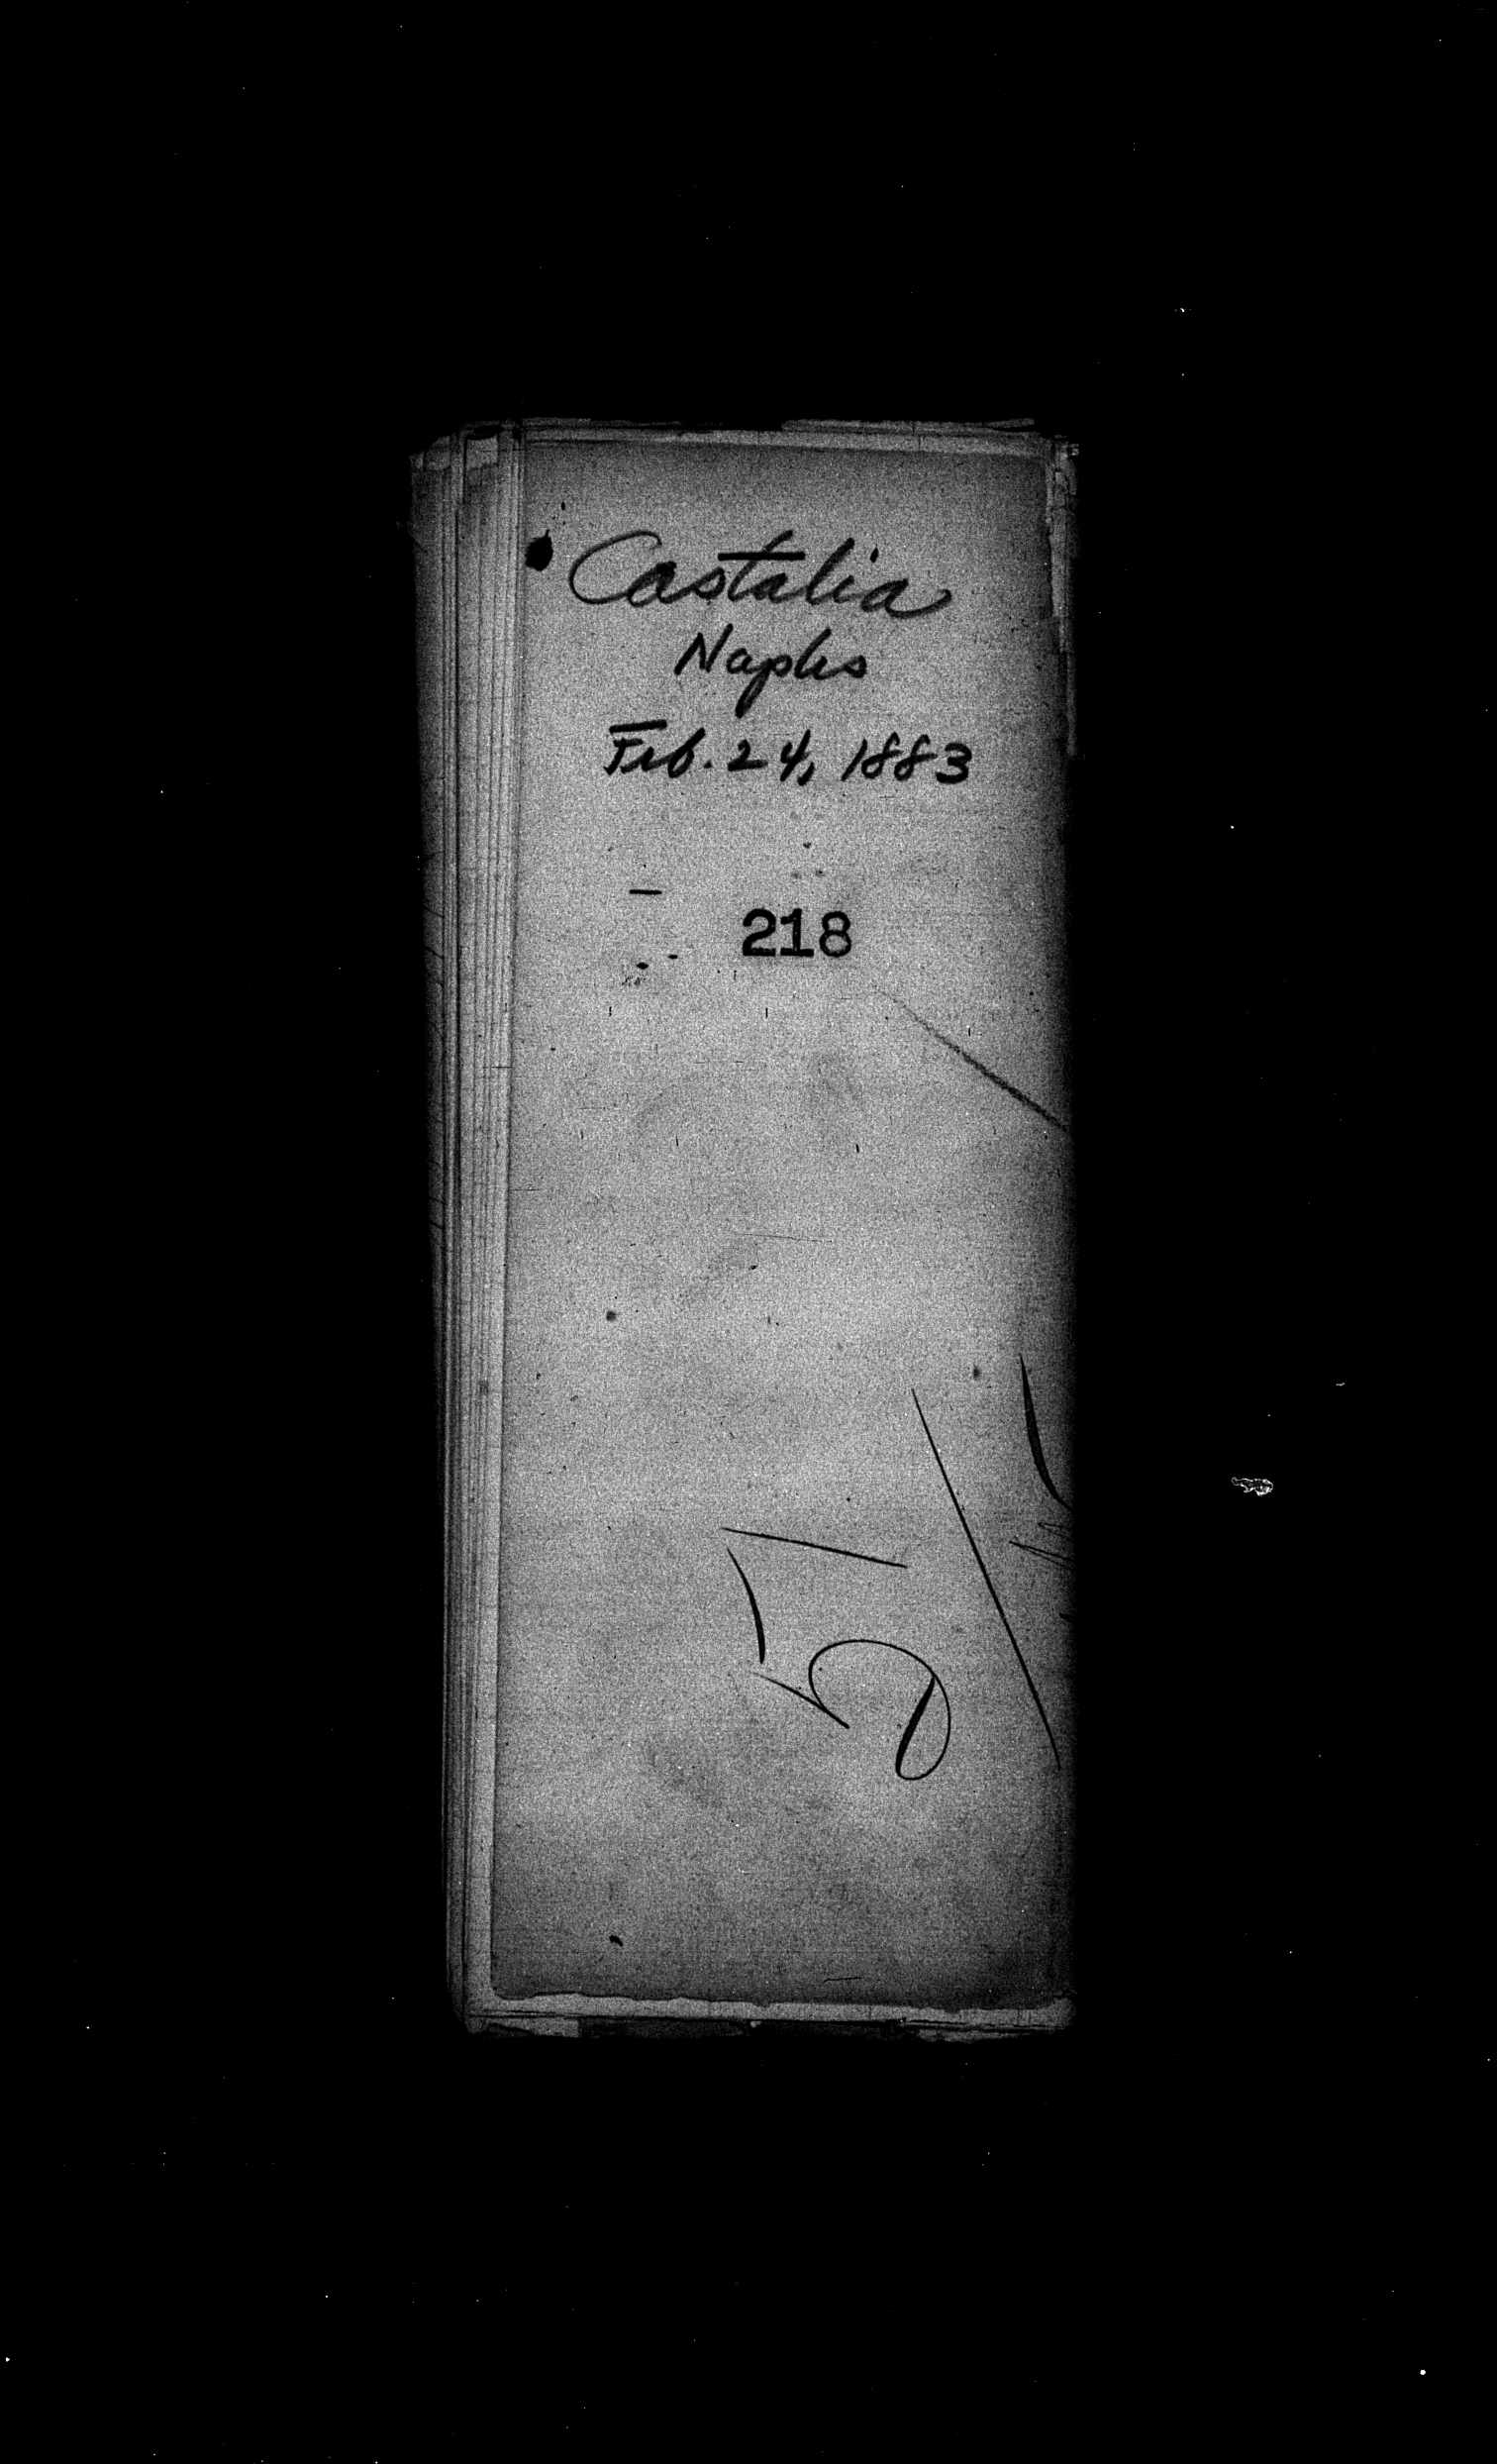 Castalia
Naples
Feb. 24, 1883
218